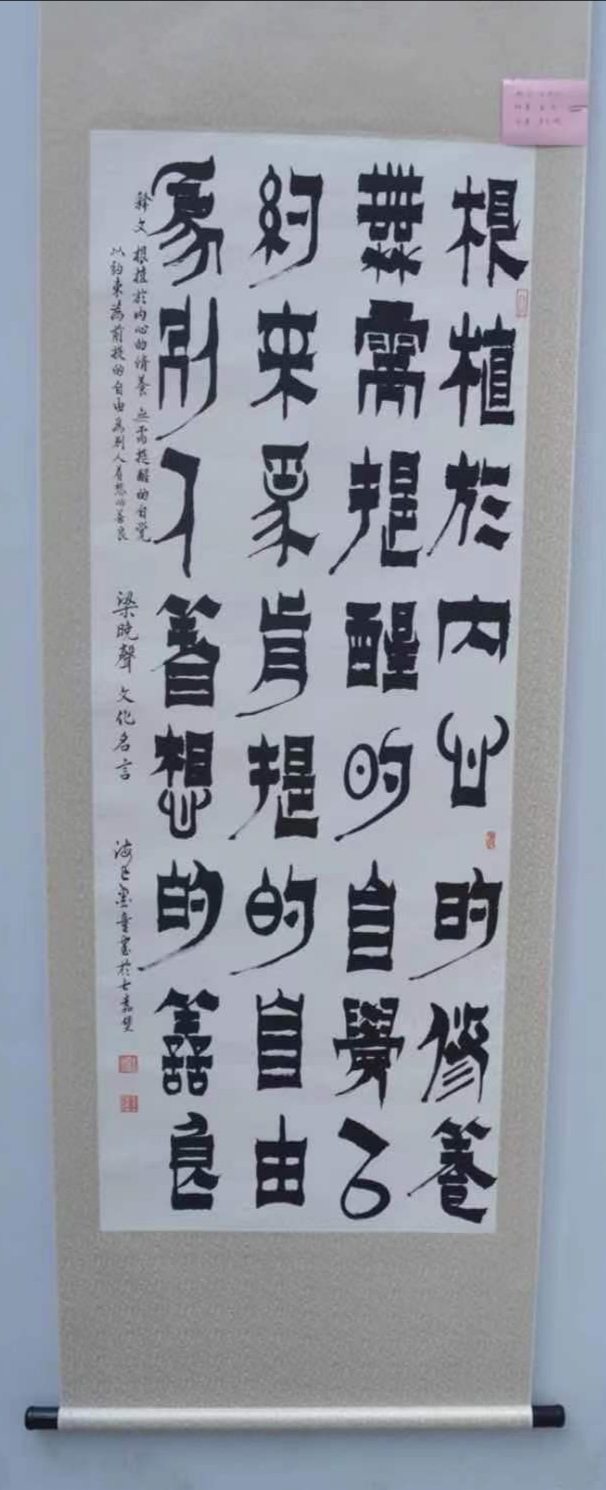 根植於内心的修養
無需提醒的自覺以
約束為前提的自由
為別人着想的善良
釋文 根植於内心的修養 无需提醒的自覺
以約束為前提的自由 為別人着想的善良
梁曉聲 文化名言 墨童書於